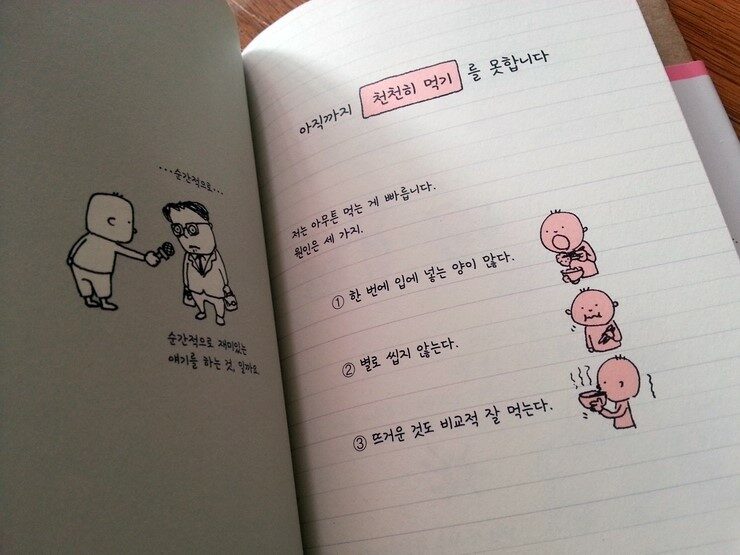 ···순간적으로···
순간적으로 재미있는
얘기를 하는 것, 일까요
아직까지 천천히 먹기 를 못합니다
저는 아무튼 먹는 게 빠릅니다.
원인은 세 가지.
① 한 번에 입에 넣는 양이 많다.
② 별로 씹지 않는다.
③ 뜨거운 것도 비교적 잘 먹는다.